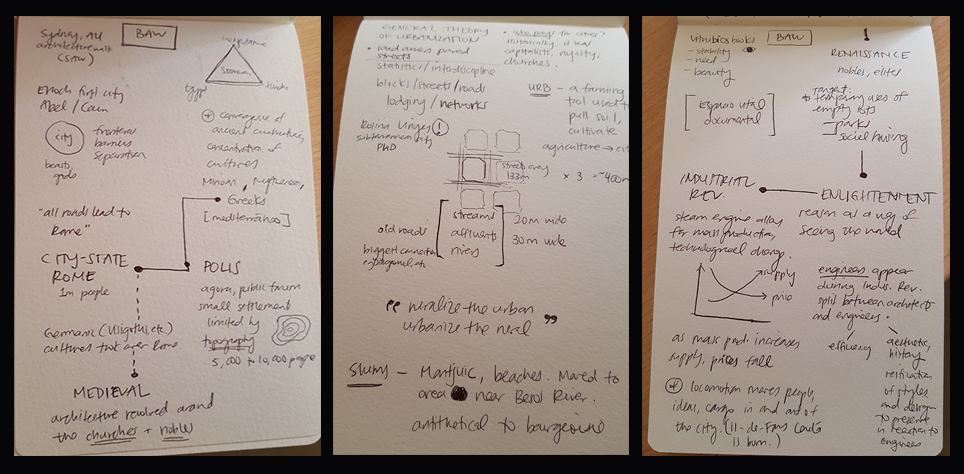 Sydney, AU
architecturewalk
(SAW)
BAW
Mesopotamia
Egypt
Enoch first city
Abel / Cain
city
frontend
barriers
separation
beasts
gods
convergence of
ancient civilizations,
concentration of
cultures
Minoan, Mycenaean,
Greeks
[mediterráneo]
"all roads lead to
Rome"
CITY-STATE
ROME
1m people
POLIS
agora, public forum
small settlement
limited by
topography
5,000 to 10,000 people
Germanic (Visigoths, etc.)
cultures took over Rome
MEDIEVAL
architecture revolved around
the churches + noble
GENERAL THEORY
OF URBANIZATION
• land owners paved
streets
statistics / interdiscipline
blocks / streets / roads
lodging / networks
• who pays for cities?
Historically, it was
capitalists, royalty,
churches.
URB – a farming
tool used to
pull soil,
cultivate
agriculture → cit
subterranean city
PhD
street every
133m
x 3 = ~400m
old roads
streams
affluents
rivers
20m wide
30m wide
" ruralize the urban
urbanize the rural "
Slums – Montjuic, beaches. Moved to
area near Besol River.
antithetical to bourgeoisie
BAW
– stability
– need
– beauty
[Espacio útil
documental]
RENAISSANCE
nobles, elites
Target:
temporary uses of
empty lots
parks
social housing
INDUSTRIAL
REV.
steam engine allows
for mass production,
technological change.
ENLIGHTENMENT
reason as a way of
seeing the world
supply
price
engineers appear
during Indus. Rev.
split between architects
and engineers.
efficiency
aesthetic,
history
of styles
and design
to present
in reaction to
engineers
as mass prod. increases
supply, prices fall
locomotion moves people,
ideas, cargo in and out of
the city. (Il-de-Fons Cerdà
is born.)